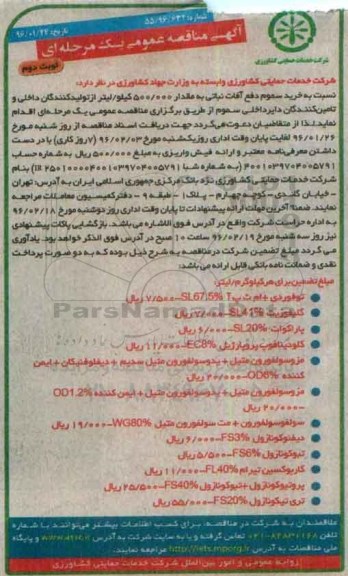 شماره: ۵۵/۹۶/۶۳۲
تاریخ: ۹۶/۰۱/۲۷
آگهی مناقصه عمومی یک مرحله ای
نوبت دوم
شرکت خدمات حمایتی کشاورزی
شرکت خدمات حمایتی کشاورزی وابسته به وزارت جهاد کشاورزی در نظر دارد:
نسبت به خرید سموم دفع آفات نباتی به مقدار ۵۰۰/۰۰۰ کیلو/لیتر از تولیدکنندگان داخلی و
تامین‌کنندگان داخلی سموم از طریق برگزاری مناقصه عمومی یک مرحله‌ای اقدام
نماید. لذا از متقاضیان دعوت می‌گردد جهت دریافت اسناد مناقصه از روز شنبه مورخ
۹۶/۰۱/۲۶ لغایت پایان وقت اداری روز یکشنبه مورخ ۹۶/۰۲/۰۳ (۷ روز کاری) با در دست
داشتن معرفی‌نامه معتبر و ارائه فیش واریزی به مبلغ ۵۰۰/۰۰۰ ریال به شماره حساب
شرکت خدمات حمایتی کشاورزی نزد بانک مرکزی جمهوری اسلامی ایران به آدرس: تهران
– خیابان گاندی – کوچه چهارم – پلاک ۱ – طبقه ۹ – دفتر کمیسیون معاملات مراجعه
نمایند. ضمناً آخرین مهلت ارائه پیشنهادات تا پایان وقت اداری روز دوشنبه مورخ ۹۶/۰۲/۱۸
به اداره حراست شرکت واقع در آدرس فوق الاشاره می‌باشد. بازگشایی پاکات پیشنهادی
نیز روز سه شنبه مورخ ۹۶/۰۲/۱۹ ساعت ۱۰ صبح در آدرس فوق الذکر خواهد بود. یادآوری
می گردد مبلغ تضمین شرکت در مناقصه به شرح ذیل بوده که به دو صورت پرداخت
نقدی و ضمانت نامه بانکی قابل ارائه می باشد:
مبلغ تضمین برای هر کیلوگرم/لیتر:
توفوردی +ام ث پ آ SL67.5%–۷/۵۰۰ ریال
گلیفوزیت SL41%–۷/۰۰۰ ریال
پاراکوات SL20%–۶/۰۰۰ ریال
کلودینافوپ پروپارژیل EC8%–۱۲/۰۰۰ ریال
مزوسولفورون متیل + یدوسولفورون متیل سدیم + دیفلوفنیکان + ایمن
کننده OD6%–۲۰/۰۰۰ ریال
مزوسولفورون متیل + یدوسولفورون متیل + ایمن کننده OD1.2%
–۲۰/۰۰۰ ریال
سولفوسولفورون + مت سولفورون متیل WG80%–۱۹/۰۰۰ ریال
دیفنوکونازول FS3%–۶/۰۰۰ ریال
تبوکونازول FS6%–۵/۵۰۰ ریال
کاربوکسین تیرام FL40%–۱۱/۰۰۰ ریال
پروتیوکونازول +تبوکونازول FS40%–۲۵/۵۰۰ ریال
تری تیکونازول FS20%–۵۵/۰۰۰ ریال
علاقمندان به شرکت در مناقصه، برای کسب اطلاعات بیشتر می‌توانند با شماره
تماس گرفته و یا به سایت شرکت به آدرس
ملی مناقصات به آدرس http://iets.mporg.ir مراجعه نمایند.
روابط عمومی و امور بین الملل شرکت خدمات حمایتی کشاورزی
ParsNamadData